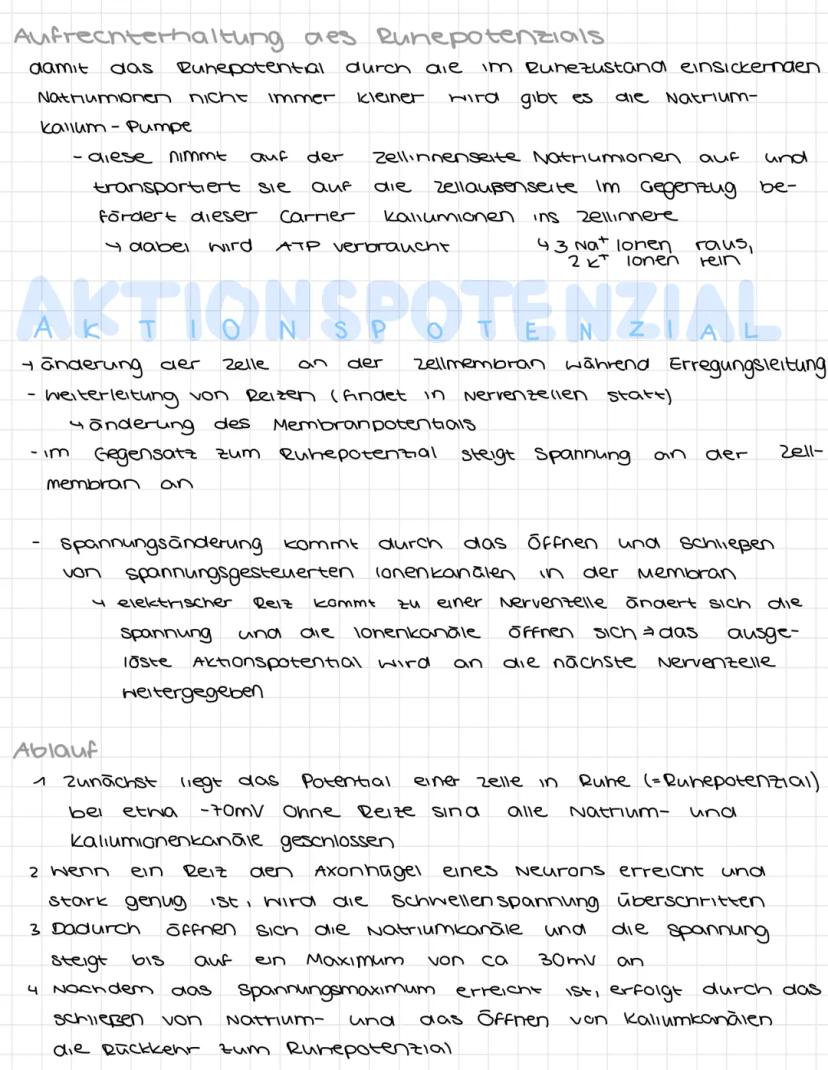 Aufrechterhaltung des Ruhepotenzials
damit das Ruhepotential durch die im Ruhezustand einsickernden
Natriumionen nicht immer kleiner wird gibt es die Natrium-
Kalium-Pumpe
- diese nimmt auf der Zellinnenseite Natriumionen auf und
transportiert sie auf die Zellaußenseite Im Gegenzug be-
fördert dieser Carrier Kaliumionen ins Zellinnere
↳ dabei wird ATP verbraucht ↳ 3 Na⁺ Ionen raus,
2 K⁺ Ionen rein
AKTIONSPOTENZIAL
AKTIONSPOTENZIAL
→ änderung der Zelle an der Zellmembran während Erregungsleitung
- Weiterleitung von Reizen (findet in Nervenzellen statt)
↳ änderung des Membranpotentials
- im Gegensatz zum Ruhepotenzial steigt Spannung an der Zell-
membran an
- Spannungsänderung kommt durch das Öffnen und Schließen
von spannungsgesteuerten Ionenkanälen in der Membran
↳ elektrischer Reiz kommt zu einer Nervenzelle ändert sich die
Spannung und die Ionenkanäle öffnen sich → das ausge-
löste Aktionspotential wird an die nächste Nervenzelle
weitergegeben
Ablauf
1 Zunächst liegt das Potential einer Zelle in Ruhe (=Ruhepotenzial)
bei etwa -70mV Ohne Reize sind alle Natrium- und
Kaliumionenkanäle geschlossen
2 Wenn ein Reiz den Axonhügel eines Neurons erreicht und
stark genug ist, wird die Schwellenspannung überschritten
3 Dadurch öffnen sich die Natriumkanäle und die Spannung
steigt bis auf ein Maximum von ca 30mV an
4 Nachdem das Spannungsmaximum erreicht ist, erfolgt durch das
Schließen von Natrium- und das Öffnen von Kaliumkanälen
die Rückkehr zum Ruhepotenzial